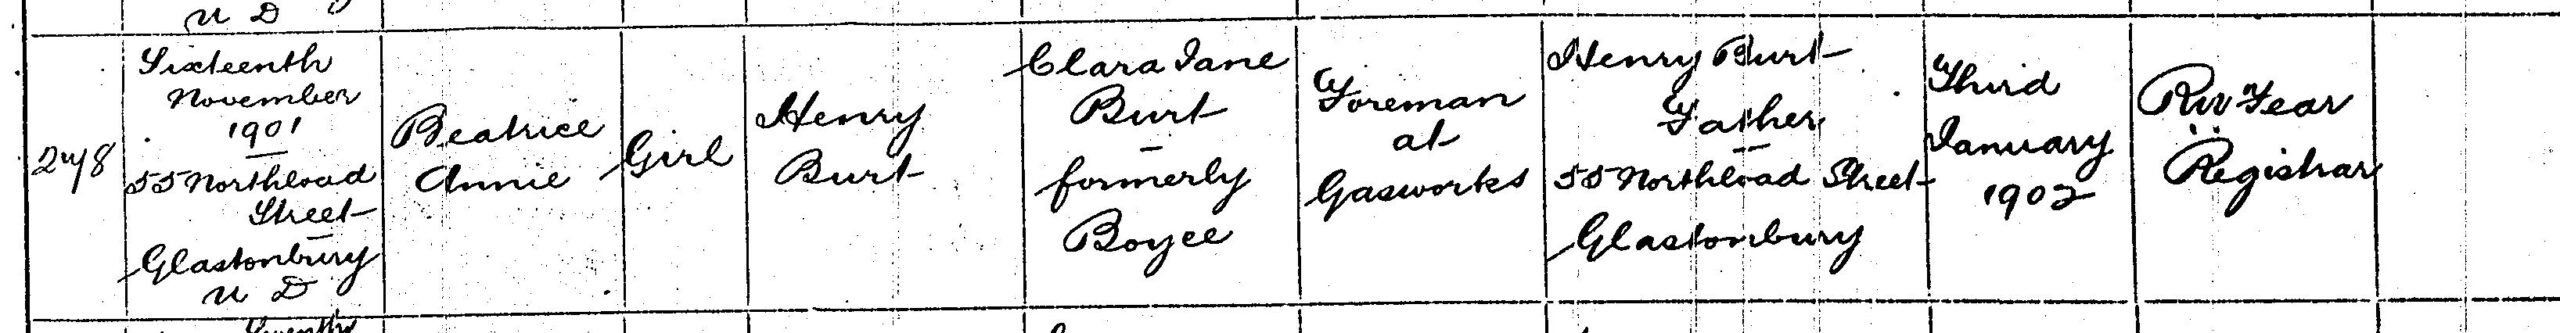 U D
278
Sixteenth
November
1901
55 Northload
Street
Glastonbury
U D
Beatrice
Annie
Girl
Henry
Burt
Clara Jane
Burt
formerly
Boyce
Foreman
at
Gasworks
Henry Burt
Father
55 Northload Street
Glastonbury
Third
January
1902
Year
Registrar